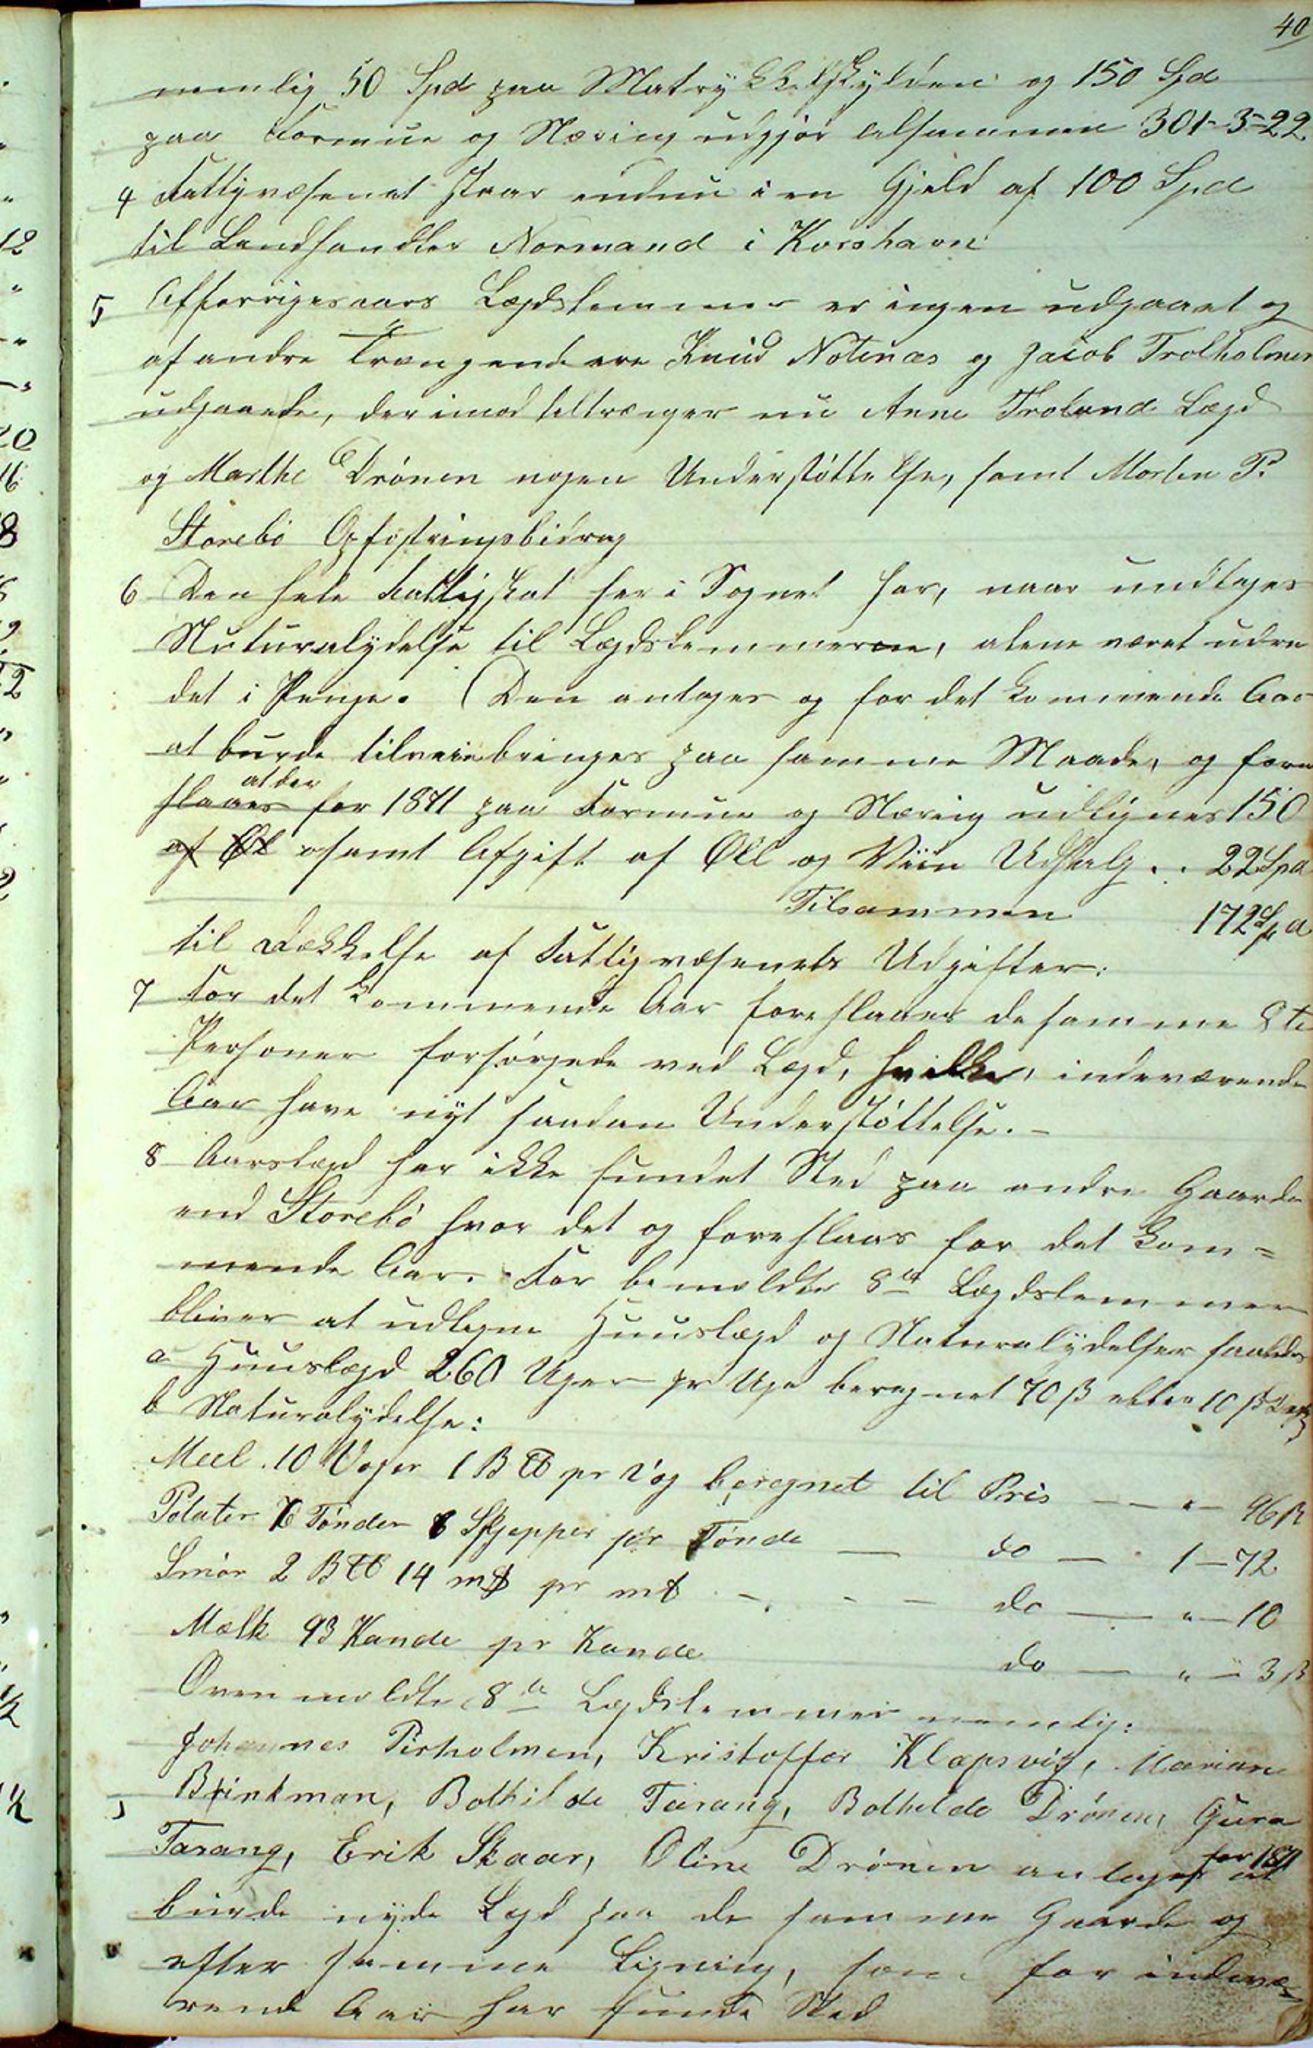 40
nemlig 50 Spd paa Matrykkelskylden og 150 Spd
paa Formue og Næring udgjør alsammen 301-3-22
4 Fattigvæsenet staar endnu i en Gjeld af 100 Spd
til Landhandler Normand i Korshavn
5 Af forrigesaars Lægdslemmer er ingen udgaaet og
af andre Trængende ere Knud Notenæs og Jacob Trolholmen
udgaaede, derimod tiltrænger nu Anne Troland Lægd
og Marthe Drönen nogen Understøttelse, samt Morten P.
Storebö Opfostringsbidrag
6 Den hele Fattigskat her i Sognet har, naar undtages
Naturalydelse til Lægdslemmerne, alene været udre
det i Penge. Den antages og for det kommende Aar
at burde tilveiebringes paa samme Maade, og fore
slaaes at der for 1871 paa Formue og Næring udlignes 150
af Øl samt Afgift af Øll og Viin Udsalg . . 22 Spd
Tilsammen 172 Spd
til Dækkelse af Fattigvæsenets Udgifter.
7 For det kommende Aar foreslaaes de samme 8te
Personer forsørgede ved Lægd, hvilke indeværende
Aar have nyt saadan Understøttelse. -
8 Aarslægd har ikke fundet Sted paa andre Gaarde
end Storebö hvor det og foreslaas for det kom=
mende Aar. For bemeldte 8te Lægdslemmer
bliver at udlegne Huuslægd og Naturalydelser saaledes
a Huuslægd 260 Uger pr Uge beregnet 70 ß eller 10 ß
b Naturalydelse:
Meel 10 Voger 1 B℔ pr Vog beregnet til Pris — " — 96 ß
Poteter 7 Tønder 6 Skjepper pr Tønde — do — 1 — 72
Smör 2 B℔ 14 m℔ pr m℔ - - - do — " — 10
Mælk 93 Kande pr Kande do — " — 3 ß
Ovenmeldte 8te Lægdslemmer nemlig:
Johannes Pirholmen, Kristoffer Klæpsvig, Marian
Brinkman, Bothilde Tarang, Bothilde Drönen, Gura
Tarang, Erik Skaar, Oline Drönen antages for 1871 at
burde nyde Lægd paa de samme Gaarde og
efter samme Ligning, som for indevæ=
rende Aar har funde Sted